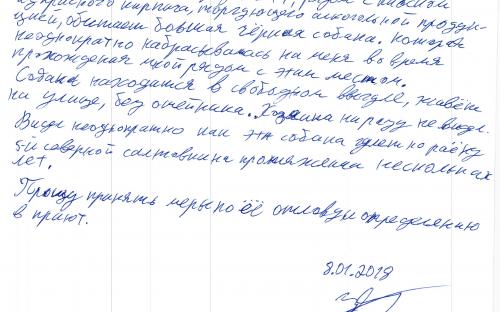 из красного кирпича, торгующего алкогольной продук-
цией, обитает большая чёрная собака, которая
неоднократно набрасывалась на меня во время
прохождения мной рядом с этим местом.
Собака находится в свободном выгуле, живёт
на улице, без ошейника. Хозяина ни разу не видел.
Видел неоднократно как эта собака по району
5й северной салтовки на протяжении нескольких
лет.
Прошу принять меры по её отлову и определению
в приют.
8.01.2018